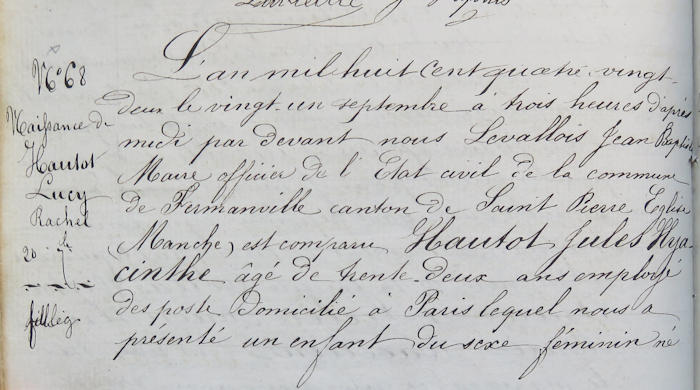 N° 68
Naissance de
Hautot
Lucy
Rachel
20 7bre
fille lég
L'an mil huit cent quatre-vingt-
deux le vingt-un septembre à trois heures d'après
midi par devant nous Levallois Jean Baptiste
Maire officier de l'Etat civil de la commune
de Fermanville canton de Saint Pierre Eglise
(Manche) est comparu Hautot Jules Hya-
cinthe âgé de trente-deux ans employé
des poste Domicilié à Paris lequel nous a
présenté un enfant du sexe féminin né